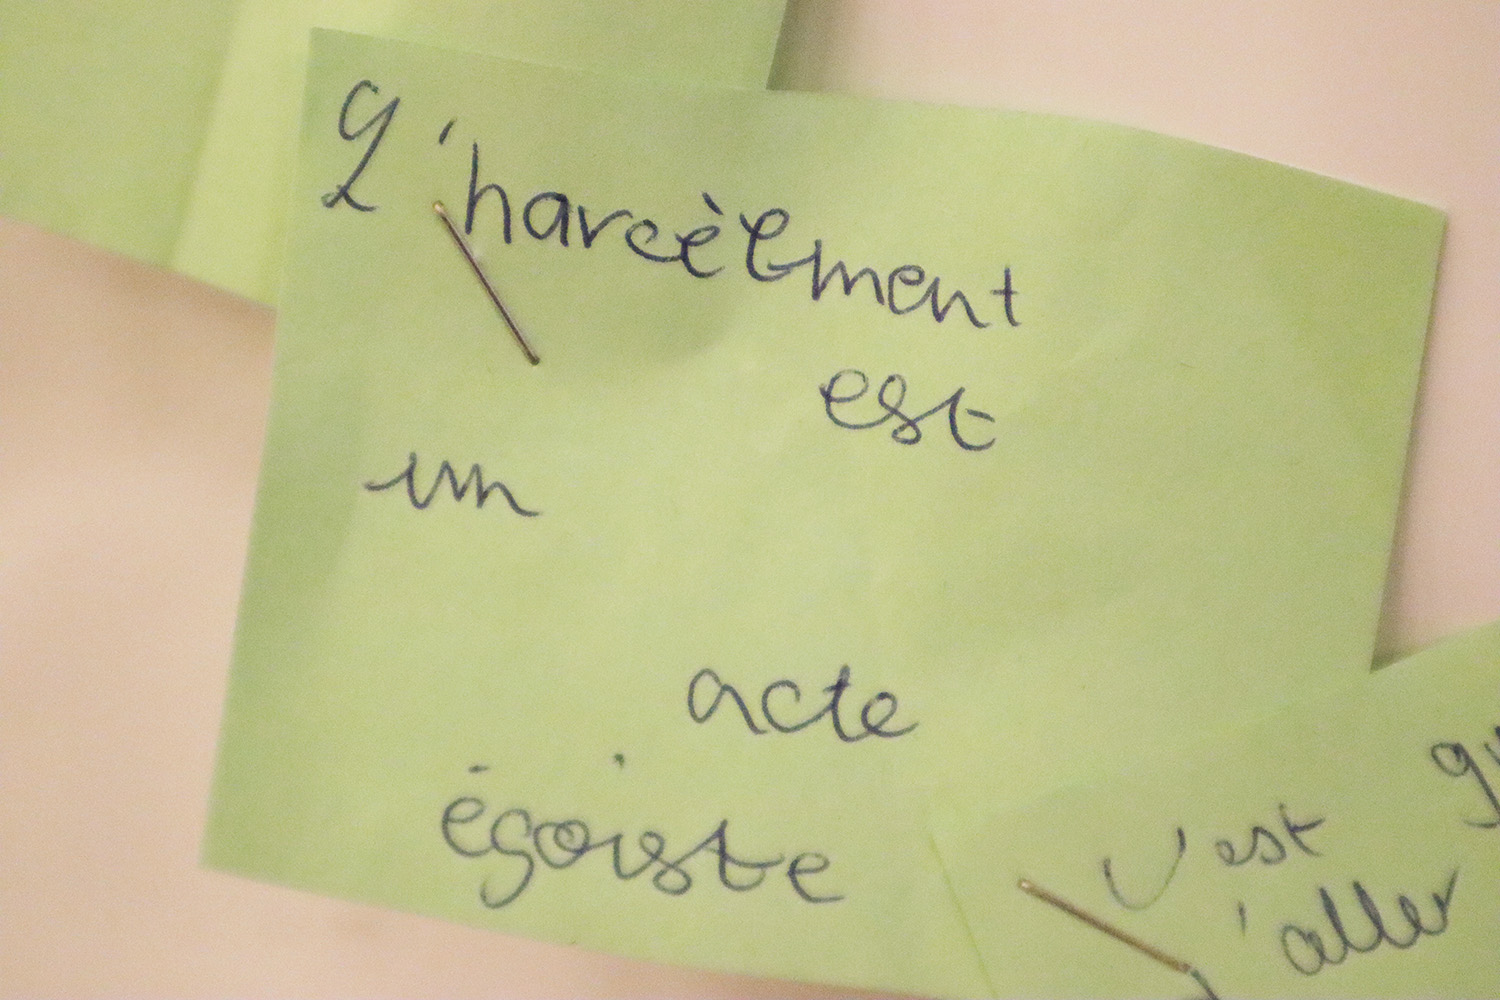 L'harcèlment
est
un
acte
égoiste
c'est
'aller